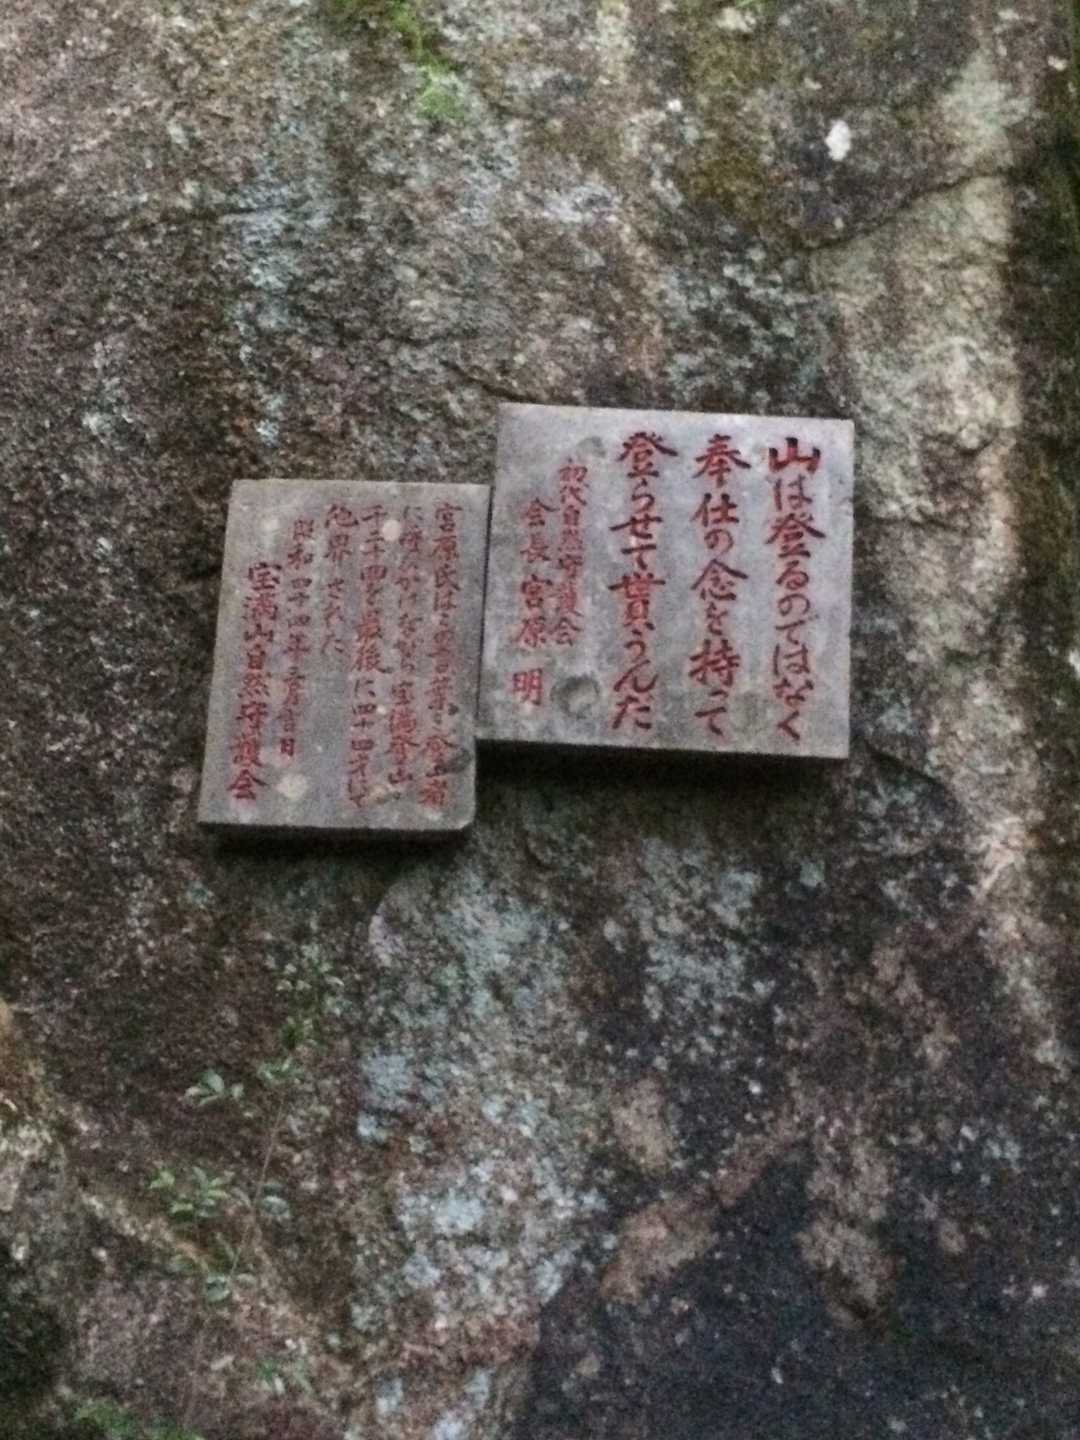 山は登るのではなく
奉仕の念を持って
登らせて貰うんだ
初代自然守護会
会長 宮原 明
宮原氏は の言葉を登山者
に 宝満登山
千二十四 を最後に四十四才にて
他界された
昭和四十四年 月 日
宝満山自然守護会